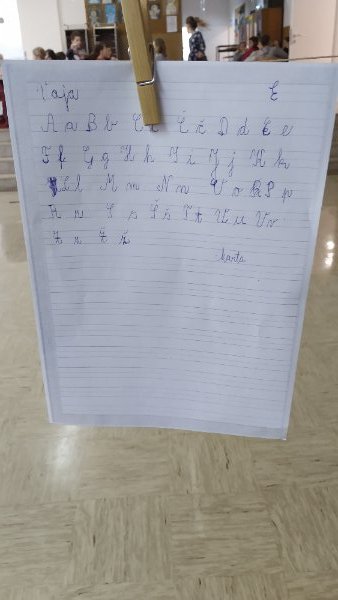 Vaja E
A a B b C c Č č D d E e
F f G g H h I i J j K k
L l M m N n O o P p
R r S s Š š T t U u V v
Z z Ž ž